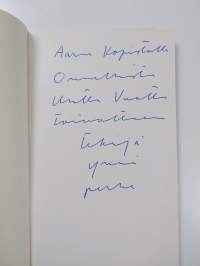 Aarne Kopistolle
Onnellista
Uutta Vuotta
toivottaen
tekijä